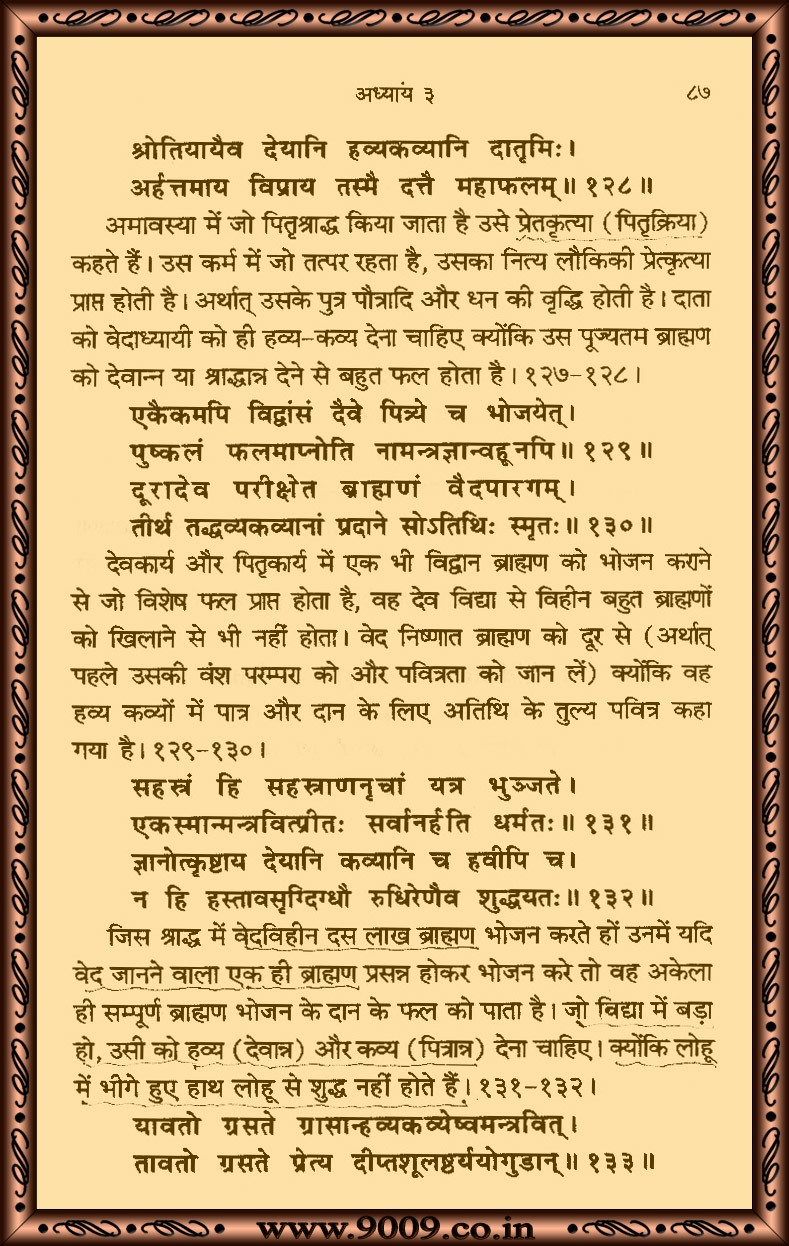 अध्याय ३ ८७
श्रोतियायैव देयानि हव्यकव्यानि दातृमिः।
अर्हत्तमाय विप्राय तस्मै दत्तै महाफलम्॥ १२८॥
अमावस्या में जो पितृश्राद्ध किया जाता है उसे प्रेतकृत्या (पितृक्रिया)
कहते हैं। उस कर्म में जो तत्पर रहता है, उसका नित्य लौकिकी प्रेत्कृत्या
प्राप्त होती है। अर्थात् उसके पुत्र पौत्रादि और धन की वृद्धि होती है। दाता
को वेदाध्यायी को ही हव्य-कव्य देना चाहिए क्योंकि उस पूज्यतम ब्राह्मण
को देवान्न या श्राद्धान्न देने से बहुत फल होता है। १२७-१२८।
एकैकमपि विद्वांसं दैवे पित्र्ये च भोजयेत्।
पुष्कलं फलमाप्नोति नामन्त्रज्ञान्वहूनपि॥ १२९॥
दूरादेव परीक्षेत ब्राह्मणं वैदपारगम्।
तीर्थ तद्धव्यकव्यानां प्रदाने सोऽतिथिः स्मृतः॥ १३०॥
देवकार्य और पितृकार्य में एक भी विद्वान ब्राह्मण को भोजन कराने
से जो विशेष फल प्राप्त होता है, वह देव विद्या से विहीन बहुत ब्राह्मणों
को खिलाने से भी नहीं होता। वेद निष्णात ब्राह्मण को दूर से (अर्थात्
पहले उसकी वंश परम्परा को और पवित्रता को जान लें) क्योंकि वह
हव्य कव्यों में पात्र और दान के लिए अतिथि के तुल्य पवित्र कहा
गया है। १२९-१३०।
सहस्त्रं हि सहस्त्राणनृचां यत्र भुञ्जते।
एकस्मान्मन्त्रवित्प्रीतः सर्वानर्हति धर्मतः॥ १३१॥
ज्ञानोत्कृष्टाय देयानि कव्यानि च हवीपि च।
न हि हस्तावसृग्दिग्धौ रुधिरेणैव शुद्धयतः॥ १३२॥
जिस श्राद्ध में वेदविहीन दस लाख ब्राह्मण भोजन करते हों उनमें यदि
वेद जानने वाला एक ही ब्राह्मण प्रसन्न होकर भोजन करे तो वह अकेला
ही सम्पूर्ण ब्राह्मण भोजन के दान के फल को पाता है। जो विद्या में बड़ा
हो, उसी को हव्य (देवान्न) और कव्य (पित्रान्न) देना चाहिए। क्योंकि लोहू
में भीगे हुए हाथ लोहू से शुद्ध नहीं होते हैं। १३१-१३२।
यावतो ग्रसते ग्रासान्हव्यकव्येष्वमन्त्रवित्।
तावतो ग्रसते प्रेत्य दीप्तशूलष्ठर्ययोगुडान्॥ १३३॥
www.9009.co.in